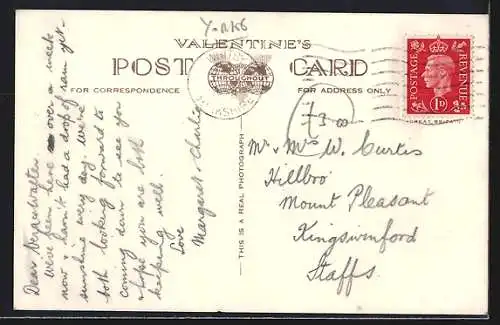 Y-RK6
VALENTINE'S
POST CARD
FOR CORRESPONDENCE
FOR ADDRESS ONLY
THROUGHOUT
POSTAGE
REVENUE
1D
GREAT BRITAIN
THIS IS A REAL PHOTOGRAPH
3.00
Dear
we've been here over a week
now & havn't had a drop of rain yet -
sunshine every day. We're
both looking forward to
coming down to see you
& hope you are both
keeping well.
Love
Margaret & Charlie
Mr & Mrs W. Curtis
Hillbro'
Mount Pleasant
Kingswinford
Staffs.